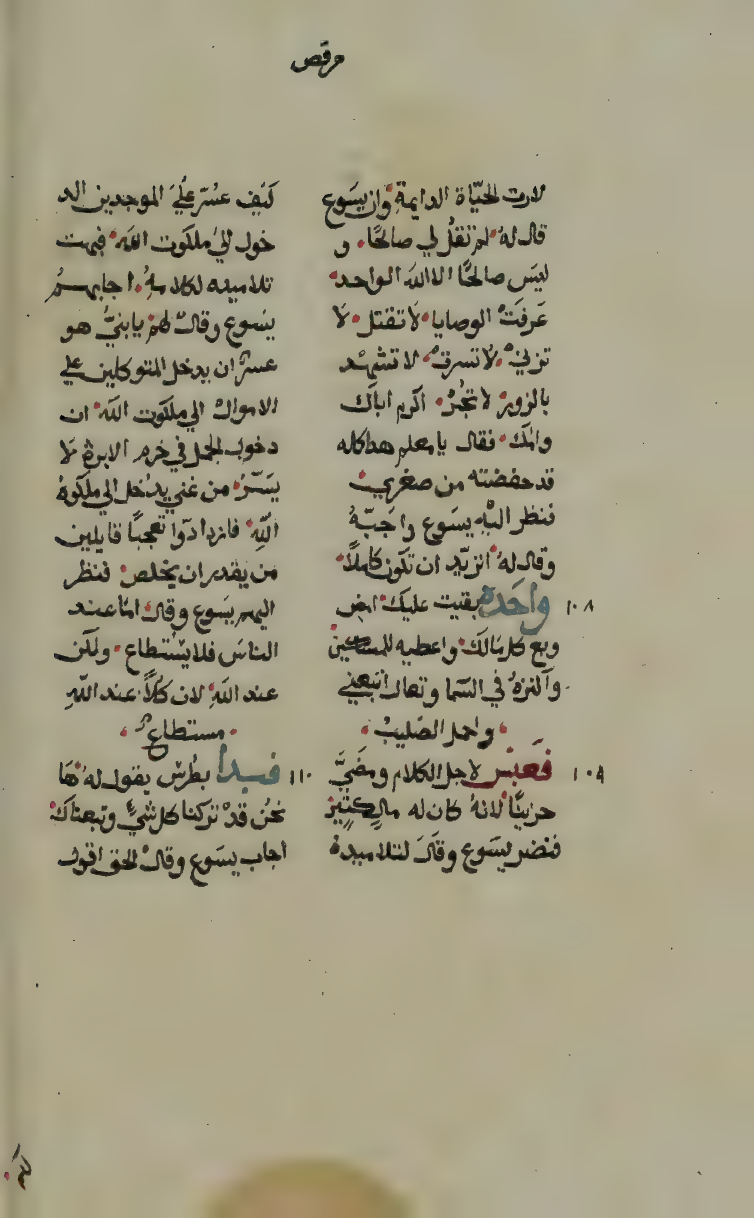 مرقص
لارت الحيّاة الدايمة وان يسوع
قال له لم تقل لي صالحًا و
ليس صالحًا الا الله الواحد
عرفت الوصايا لا تقتل لا
تزني لا تسرق لا تشهد
بالزور لا تجر اكرم اباك
وامك فقال يا معلم هدا كله
قد حفضته من صغري
فنظر اليه يسوع واحبّه
وقال له اتريد ان تكون كاملاً
١٠٨ واحدة بقيت عليك امض
وبع كل مالك واعطيه للمساكين
واكنزه في السما وتعال اتبعني
واحمل الصليب
١٠٩ فعبس لاجل الكلام ومضيَّ
حزينًا لانه كان له مال كثير
فنضر يسوع وقال لتلاميدة
كيف عسر عليَ الموجدين الد
خول اليَ ملكوت الله فبهت
تلاميده لكلامه اجابهم
يسوع وقال لهم يا بنيَّ هو
عسر ان يدخل المتوكلين علي
الاموال الي ملكوت الله ان
دخول الجمل في خرم الابرة لا
يسّر من غني يدخل الي ملكوة
الله فازدادوا تعجبًا قايلين
من يقدر ان يخلص فنظر
اليهم يسوع وقال امّا عند
الناس فلا يستطاع ولكن
عند الله لان كلاً عند الله
مستطاع
١١٠ فبدا بطرس يقول له ها
نحن قد تركنا كل شيَ وتبعناك
اجاب يسوع وقال الحق اقول